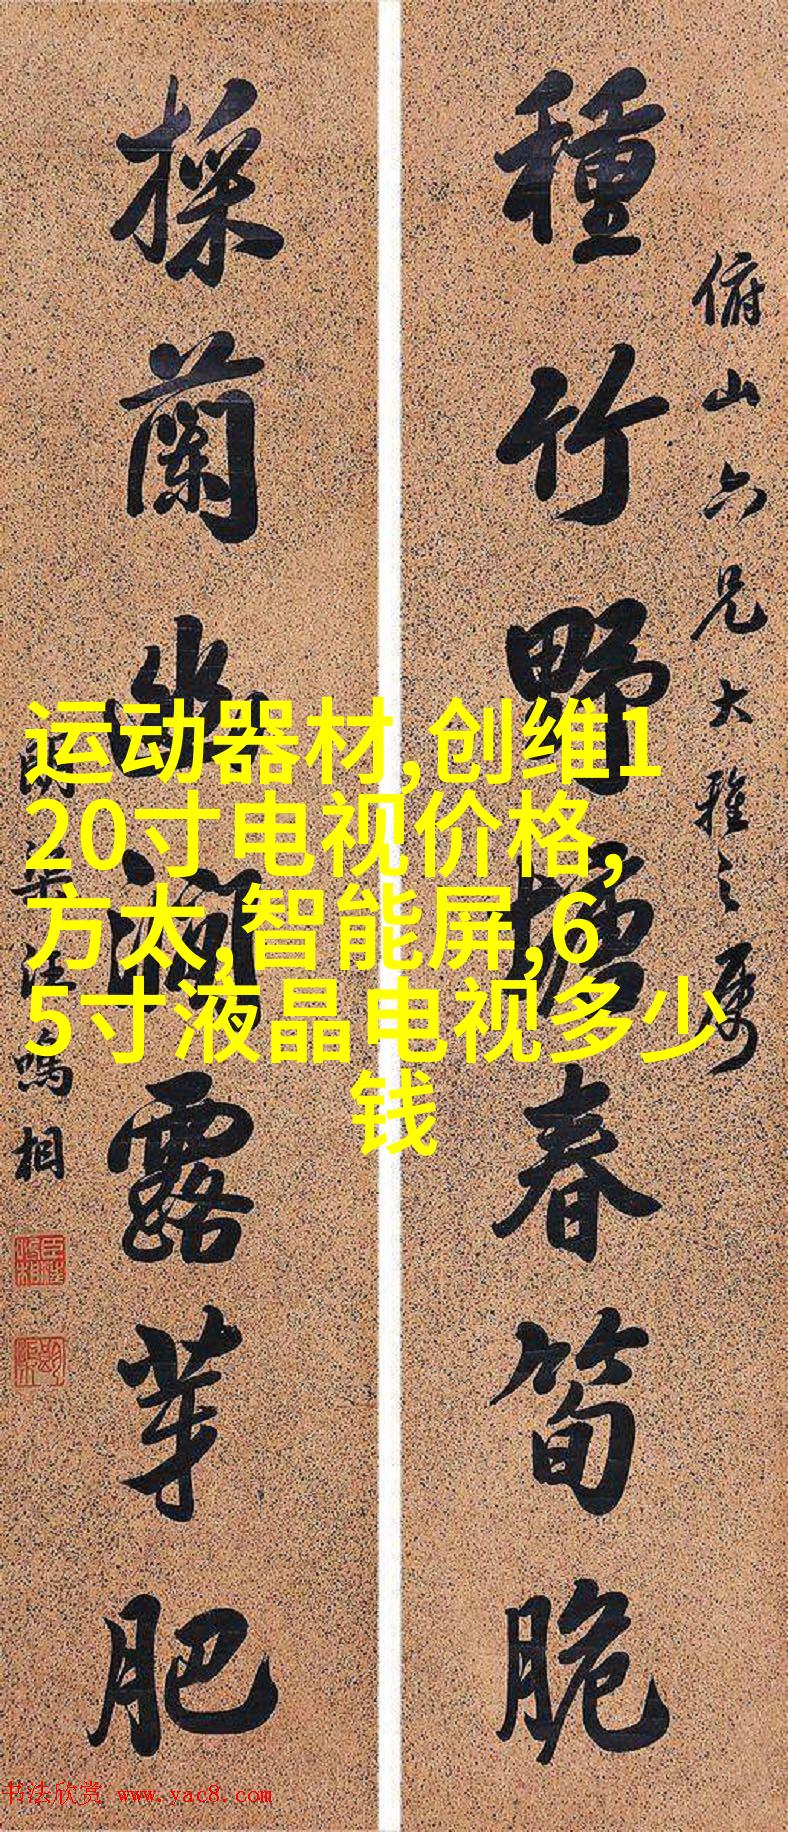 種竹野塘春筍脆
俯山六兄大雅之屬
採蘭幽澗露芽肥
汪鳴相
运动器材,创维1
20寸电视价格,
方太,智能屏,6
5寸液晶电视多少
钱
书法欣赏 www.yac8.com